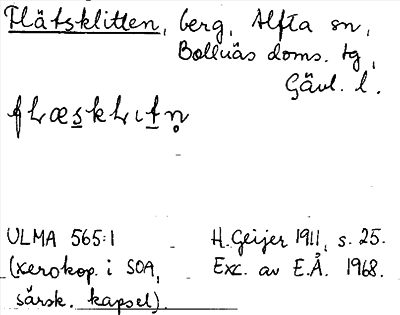 Flätsklitten, berg, Alfta sn,
Bollnäs doms. tg,
Gävl. l.
ULMA 565:1
(xerokop. i SOA,
särsk. kapsel).
H. Geijer 1911, s. 25.
Exc. av E.Å. 1968.